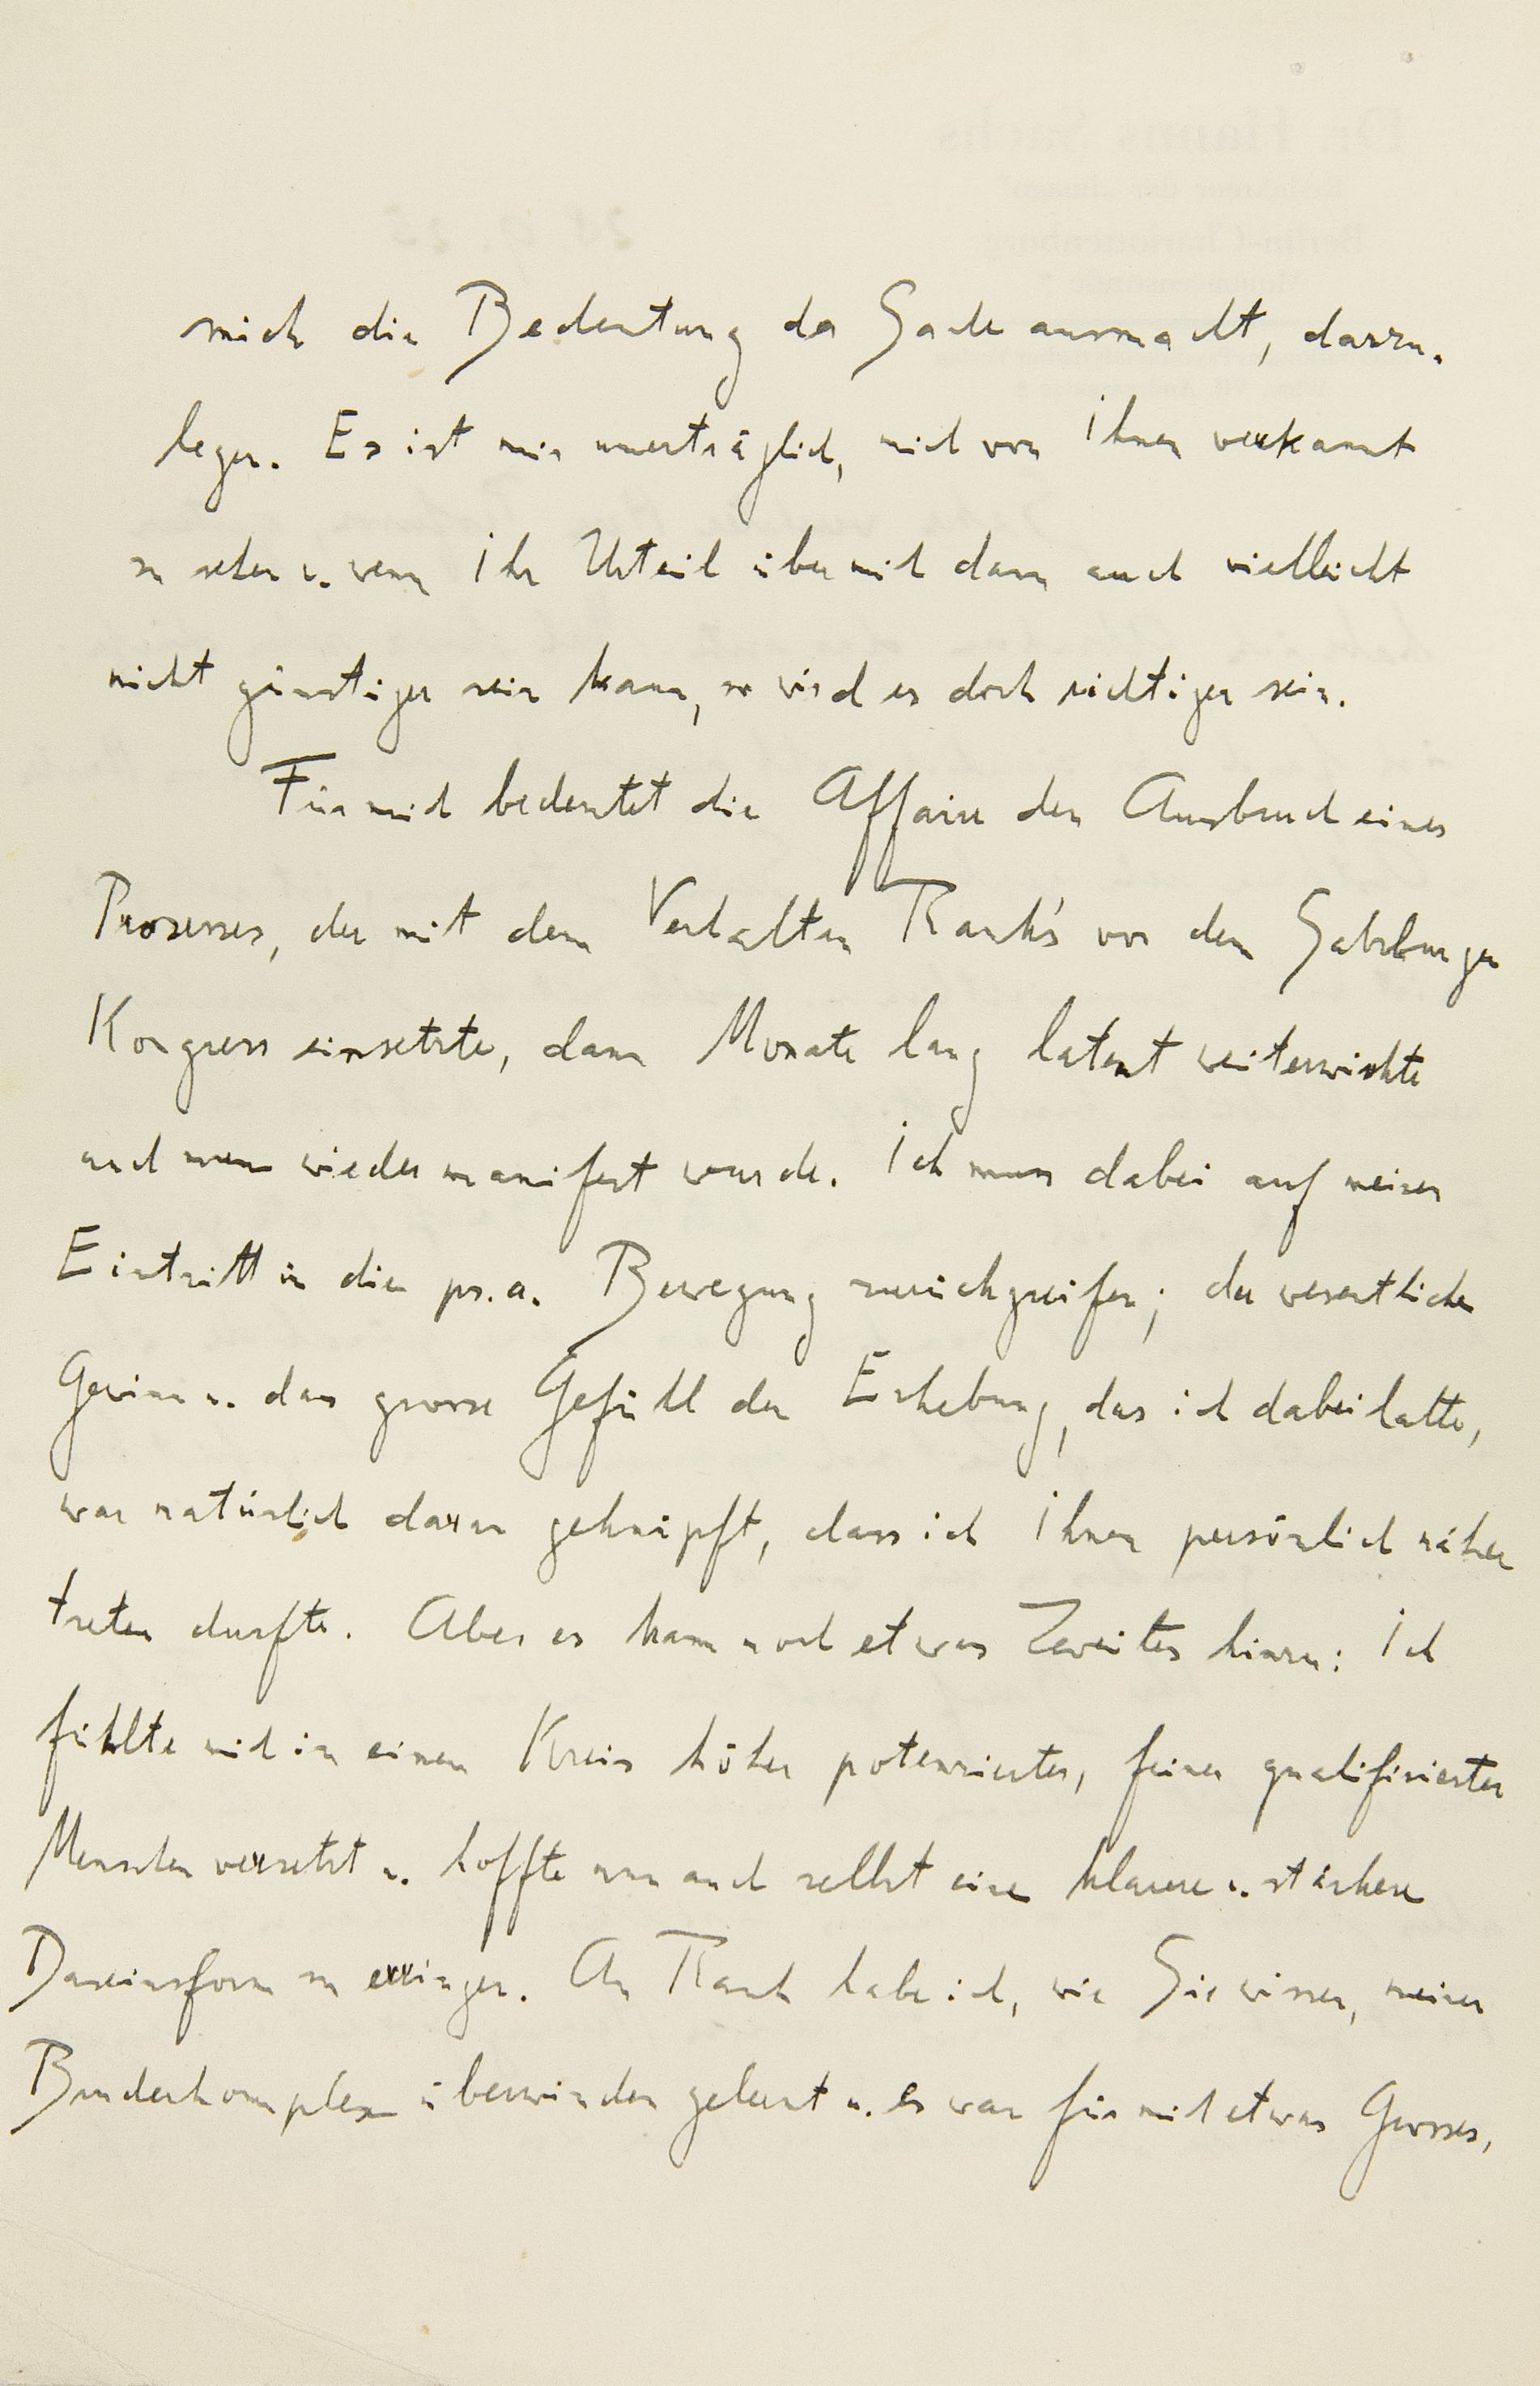 mich die Bedeutung der Sache ausmacht, darzu-
legen. Es ist mir unerträglich, mich von Ihnen verkannt
zu sehen u. wenn Ihr Urteil über mich dann auch vielleicht
nicht günstiger sein kann, so wird es doch richtiger sein.
Für mich bedeutet die Affaire den Ausbruch eines
Prozesses, der mit dem Verhalten Rank's vor dem Salzburger
Kongress einsetzte, dann Monate lang latent weiterwirkte
und nun wieder manifest wurde. Ich muss dabei auf meinen
Eintritt in die ps.a. Bewegung zurückgreifen; der wesentliche
Gewinn u. das grosse Gefühl der Erhebung, das ich dabei hatte,
war natürlich daran geknüpft, dass ich Ihnen persönlich näher
treten durfte. Aber es kam noch etwas Zweites hinzu: Ich
fühlte mich in einen Kreis höher potenzierter, feiner qualifizierter
Menschen versetzt u. hoffte nun auch selbst eine klarere u. stärkere
Daseinsform zu erringen. An Rank habe ich, wie Sie wissen, meinen
Bruderkomplex überwinden gelernt u. es war für mich etwas Grosses,